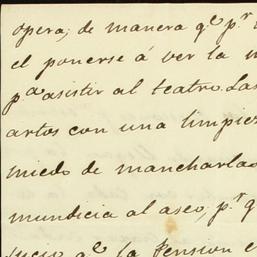 opera; de manera qᵉ pʳ
el ponerse á ver la
pᵃ asistir al teatro. Las
artos con una limpiez
miedo de mancharlas
mundicia al aseo, pʳ q
sucio qᵉ la Pension e